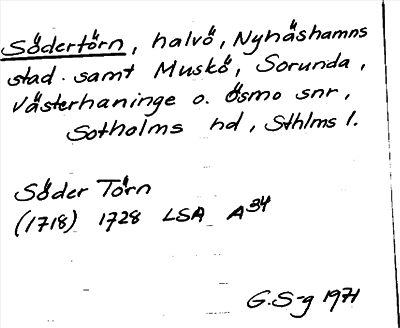 Södertörn, halvö, Nynäshamns
stad samt Muskö, Sorunda,
Västerhaninge o. Ösmo snr,
Sotholms hd, Sthlms l.
Söder Törn
(1718) 1728 LSA A34
G.S-g 1971